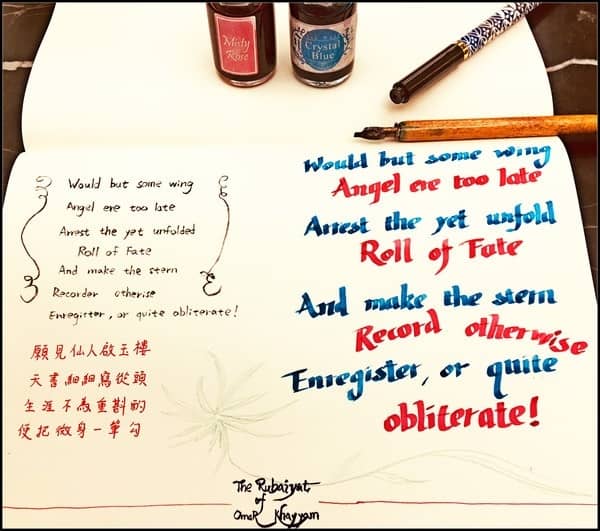 Misty
Rose
Crystal
Blue
Would but some wing
Angel ere too late
Arrest the yet unfolded
Roll of Fate
And make the stern
Recorder otherise
Enregister, or quite obliterate!
願見仙人啟玉樓
天書細細寫從頭
生涯不為重斟酌
便把微身一筆勾
Would but some wing
Angel ere too late
Arrest the yet unfold
Roll of Fate
And make the stern
Record otherwise
Enregister, or quite
obliterate!
The Rubaiyat
of
Omar Khayyam